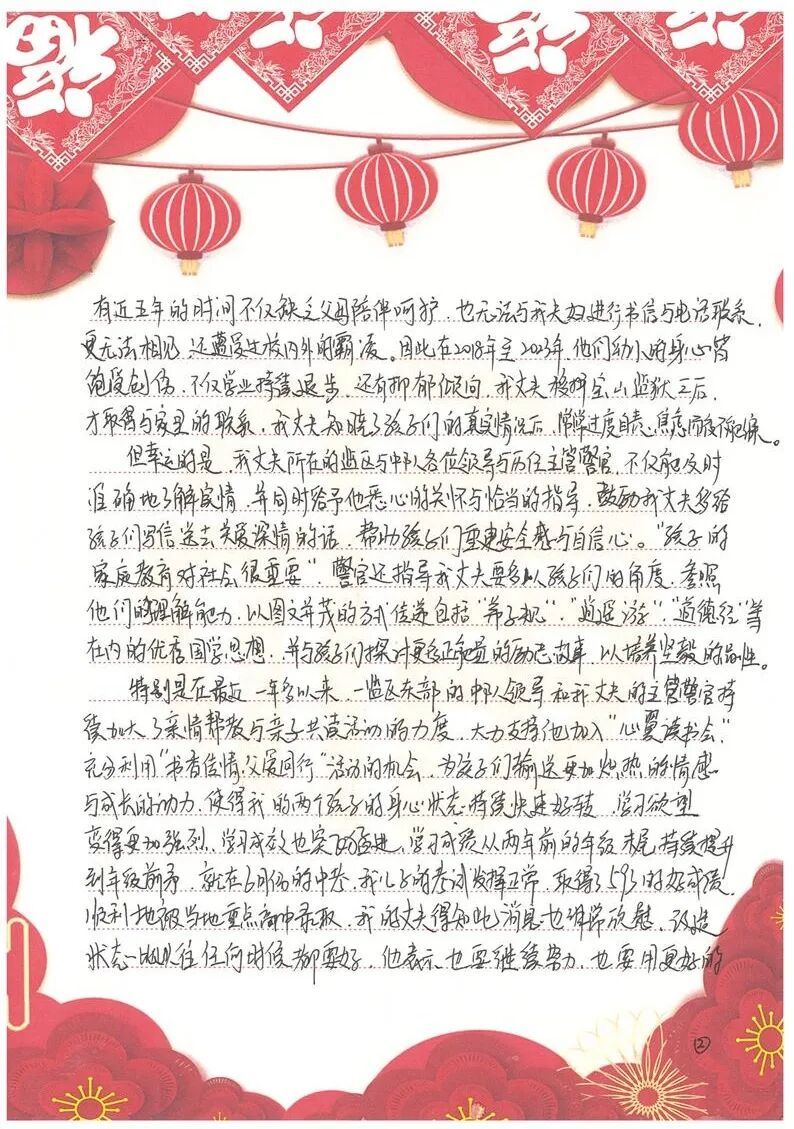 有近五年的时间不仅缺乏父母陪伴呵护,也无法与我夫妇进行书信与电话联系,
更无法相见,还遭受过校内外的霸凌。因此在2018年至2023年,他们幼小的身心皆
饱受创伤,不仅学业持续退步,还有抑郁倾向,我丈夫被押至山监狱之后,
才取得与家里的联系,我丈夫知晓了孩子们的真实情况后,常常过度自责、焦虑而夜不能寐。
但幸运的是,我丈夫所在的监区与中队各位领导与历任主管警官,不仅能及时
准确地了解实情,并同时给予他悉心的关怀与恰当的指导,鼓励我丈夫多给
孩子们写信送去关爱深情的话,帮助孩子们重建安全感与自信心。“孩子的
家庭教育对社会很重要”,警官还指导我丈夫要多从孩子们的角度,参照
他们的理解能力,以图文并茂的方式传递包括“弟子规”、“逍遥游”、“道德经”等
在内的优秀国学思想,并与孩子们探讨更多正能量的励志故事,以培养坚毅的品性。
特别是在最近一年多以来,一监区东部的中队领导和我丈夫的主管警官持
续加大了亲情帮教与亲子共读活动的力度,大力支持他加入“心翼读书会”,
充分利用“书香佳情·父爱同行”活动的机会,为孩子们输送更加炽热的情感
与成长的动力,使得我的两个孩子的身心状态持续快速好转,学习欲望
变得更加强烈,学习成效也突飞猛进,学习成绩从两年前的年级末尾持续提升
到年级前茅,就在6月份的中考,我儿子的考试发挥正常,取得了593的好成绩,
顺利地被当地重点高中录取,我的丈夫得知此消息也非常欣慰,改造
状态一比以往任何时候都要好,他表示,也要继续努力,也要用更好的
②
福